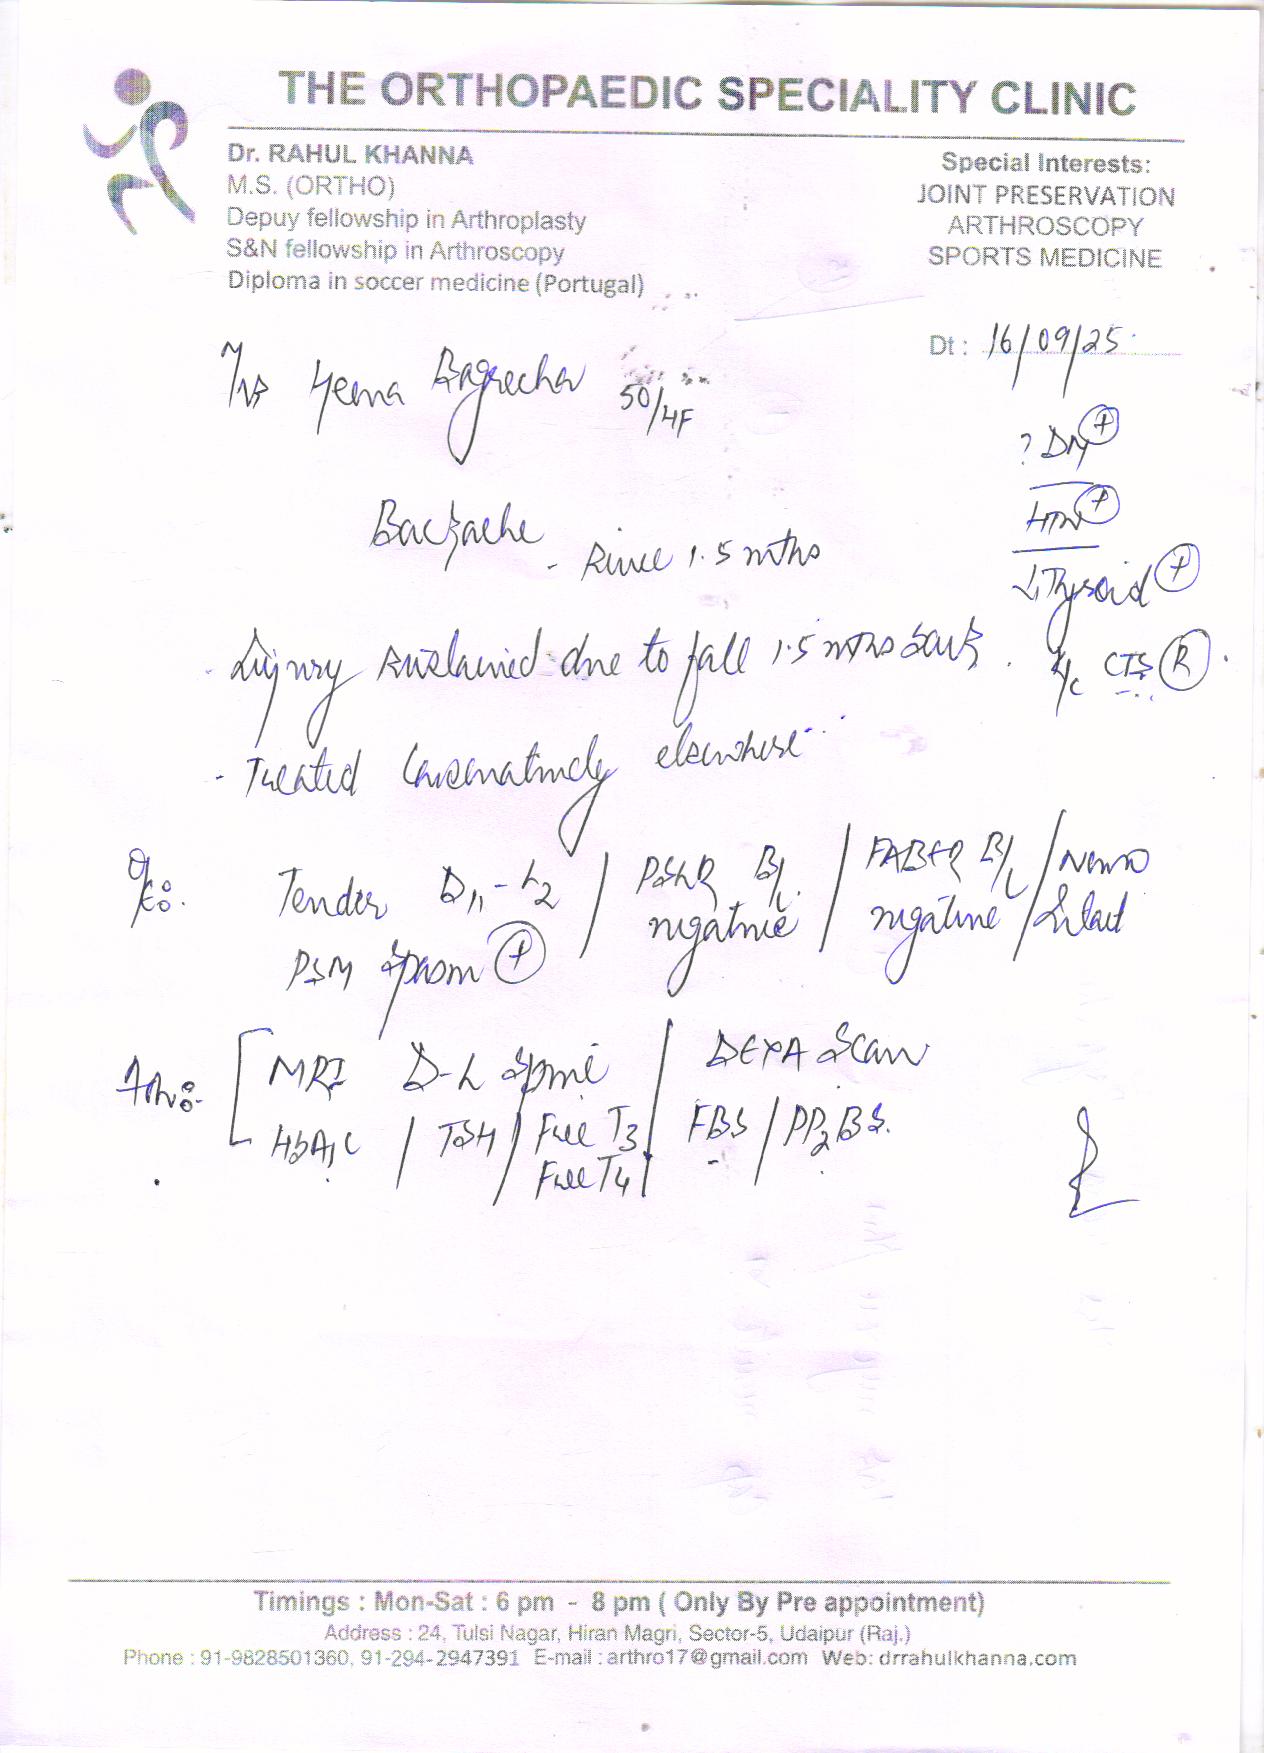 THE ORTHOPAEDIC SPECIALITY CLINIC
Dr. RAHUL KHANNA
M.S. (ORTHO)
Depuy fellowship in Arthroplasty
S&N fellowship in Arthroscopy
Diploma in soccer medicine (Portugal)
Special Interests:
JOINT PRESERVATION
ARTHROSCOPY
SPORTS MEDICINE
Dt : 16/09/25
50/F
? DM +
HTN +
Thyroid +
CTS R
Backache
- Since 1.5 mths
- Injury sustained due to fall 1.5 mths back.
- Treated conservatively elsewhere
O/E: Tender D11-L2 / PSLR B/L negative / FABER B/L negative / Neuro Intact
PSM spasm +
Adv: MRI D-L Spine / DEXA Scan
HbA1C / TSH / Free T3 Free T4 / FBS / PP2BS.
Timings : Mon-Sat : 6 pm - 8 pm ( Only By Pre appointment)
Address : 24, Tulsi Nagar, Hiran Magri, Sector-5, Udaipur (Raj.)
Phone : 91-9828501360, 91-294-2947391 E-mail : arthro17@gmail.com Web: drrahulkhanna.com